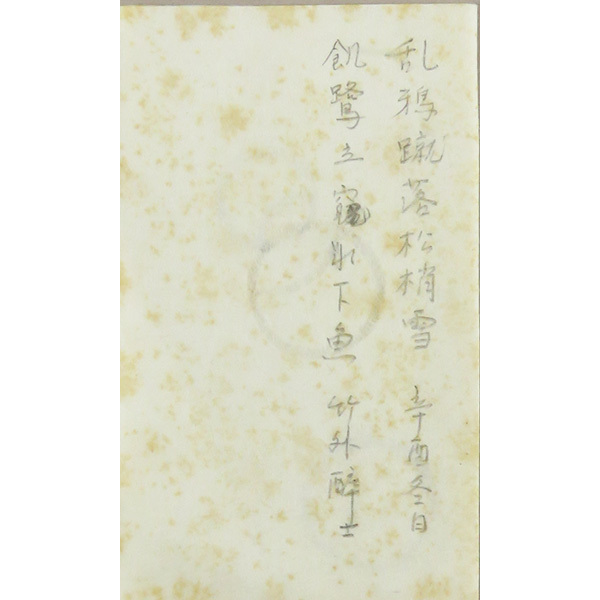 乱鴉蹴落松梢雪 辛酉冬日
飢鷺立窺氷下魚 竹外醉士